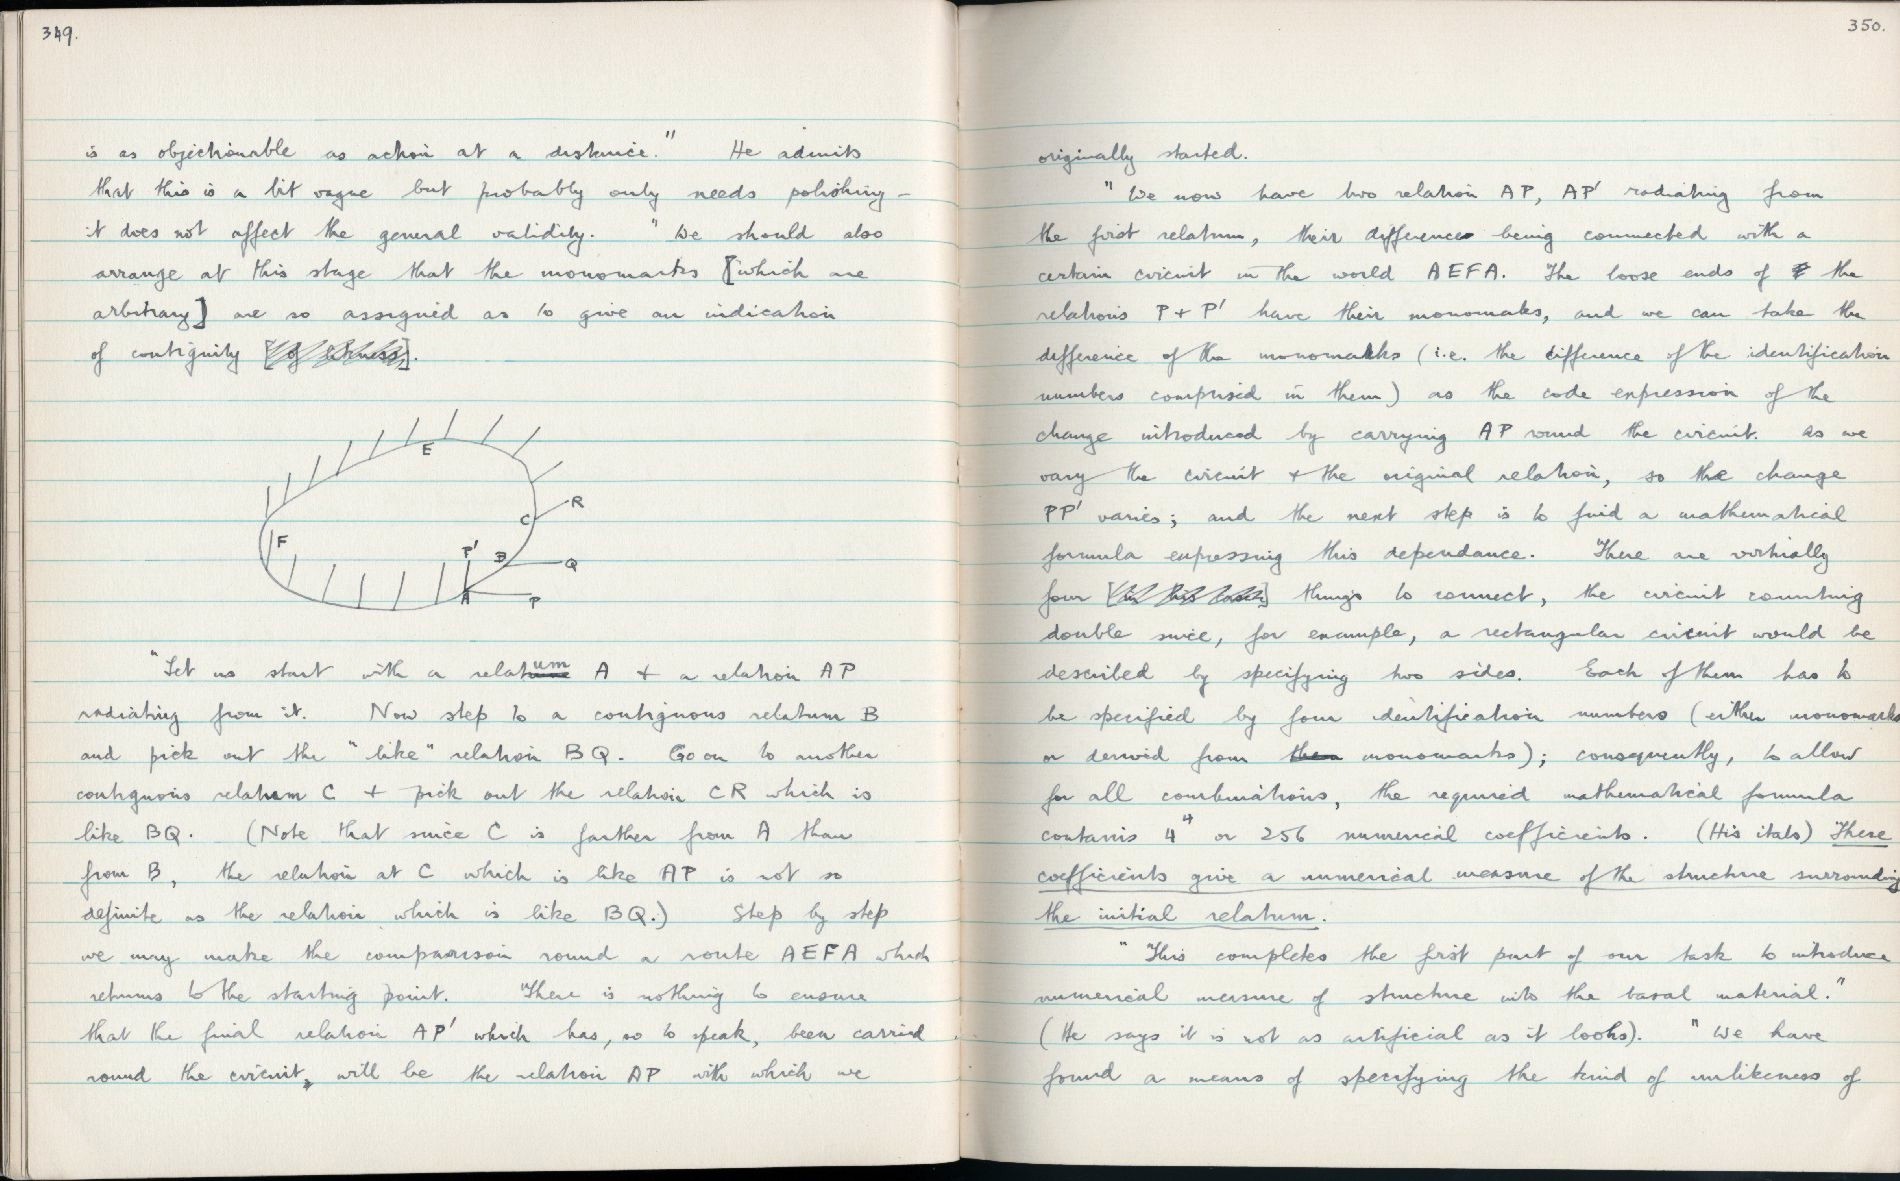 349.
is as objectionable as action at a distance." He admits
that this is a bit vague but probably only needs polishing –
it does not affect the general validity. "We should also
arrange at this stage that the monomarks [which are
arbitrary] are so assigned as to give an indication
of contiguity
E
R
C
F
P'
B
Q
A
P
"Let us start with a relatum A + a relation AP
radiating from it. Now step to a contiguous relatum B
and pick out the "like" relation BQ. Go on to another
contiguous relatum C + pick out the relation CR which is
like BQ. (Note that since C is farther from A than
from B, the relation at C which is like AP is not so
definite as the relation which is like BQ.) Step by step
we may make the comparison round a route AEFA which
returns to the starting point. "There is nothing to ensure
that the final relation AP' which has, so to speak, been carried
round the circuit, will be the relation AP with which we
350.
originally started.
"We now have two relation AP, AP' radiating from
the first relatum, their difference being connected with a
certain circuit in the world AEFA. The loose ends of the
relations P + P' have their monomarks, and we can take the
difference of the monomarks (i.e. the difference of the identification
numbers comprised in them) as the code expression of the
change introduced by carrying AP round the circuit. As we
vary the circuit + the original relation, so the change
PP' varies; and the next step is to find a mathematical
formula expressing this dependance. "There are virtually
four things to connect, the circuit counting
double since, for example, a rectangular circuit would be
described by specifying two sides. Each of them has to
be specified by four identification numbers (either monomarks
or derived from monomarks); consequently, to allow
for all combinations, the required mathematical formula
contains 4⁴ or 256 numerical coefficients. (His itals) These
coefficients give a numerical measure of the structure surrounding
the initial relatum.
"This completes the first part of our task to introduce
numerical measure of structure into the basal material."
(He says it is not as artificial as it looks). "We have
found a means of specifying the kind of unlikeness of